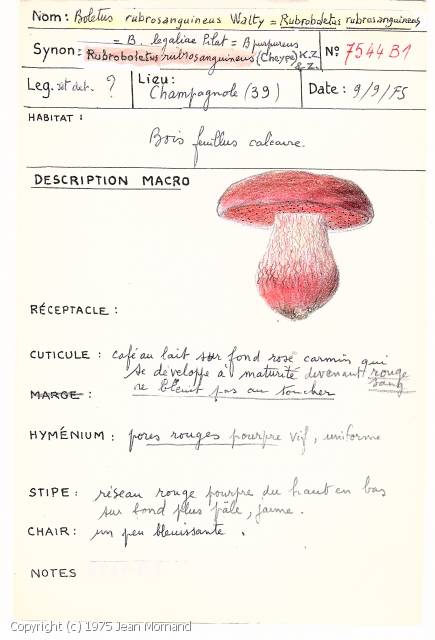 Nom : Boletus rubrosanguineus Walty = Rubroboletus rubrosanguineus
Synon : = B. legaliae Pilat = B purpureus
Rubroboletus rubrosanguineus (Cheype) K.Z. & Z.
N° 7544 B1
Leg. et det. ?
Lieu : Champagnole (39)
Date : 9/9/75
HABITAT :
Bois feuillus calcaire.
DESCRIPTION MACRO
RÉCEPTACLE :
CUTICULE : café au lait sur fond rosé carmin qui
se développe à maturité devenant rouge sang
MARGE : ne bleuit pas au toucher
HYMÉNIUM : pores rouges pourpre vif, uniforme
STIPE : réseau rouge pourpre du haut en bas
sur fond plus pâle, jaune.
CHAIR : un peu bleuissante .
NOTES
Copyright (c) 1975 Jean Mornand